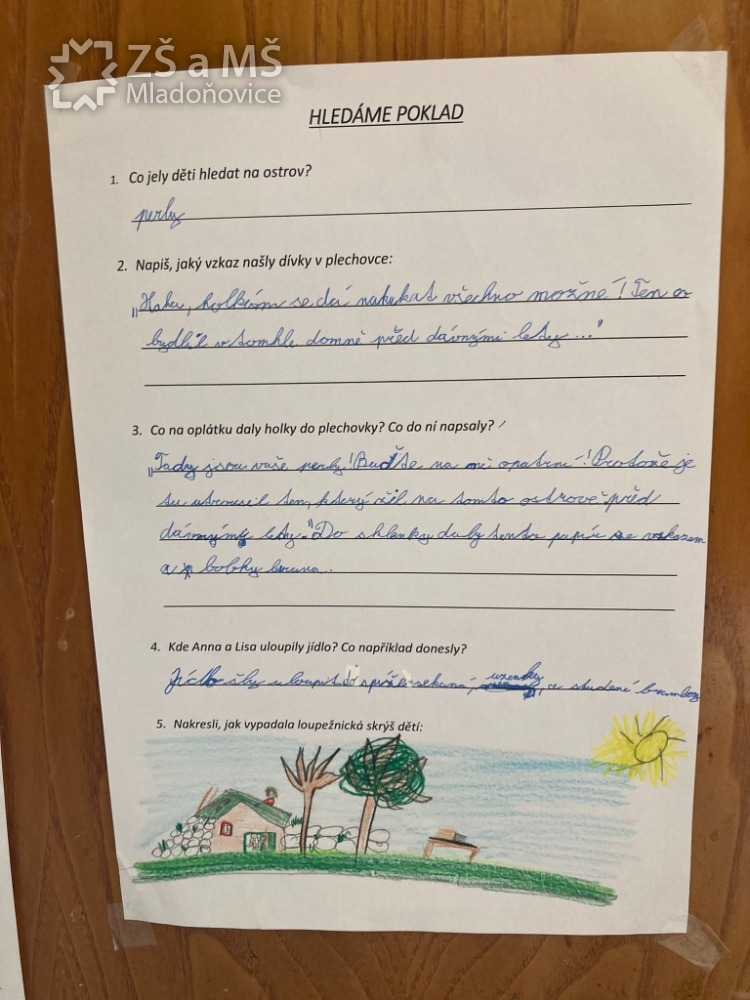 ZŠ a MŠ
Mladoňovice
HLEDÁME POKLAD
1. Co jely děti hledat na ostrov?
perly
2. Napiš, jaký vzkaz našly dívky v plechovce:
„Haha, holkám se dá nakukat všechno možné! Ten co
bydlel v tomhle domně před dávnými lety..."
3. Co na oplátku daly holky do plechovky? Co do ní napsaly?
„Tady jsou vaše perly! Buďte na ně opatrní! Protože je
tu utrousil ten, který žil na tomto ostrově před
dávnými lety." Do sklenky daly tento papír se vzkazem
a bobky
4. Kde Anna a Lisa uloupily jídlo? Co například donesly?
Jídlo šly uloupit do sekaná, uzenky, a studené brambory
5. Nakresli, jak vypadala loupežnická skrýš dětí: